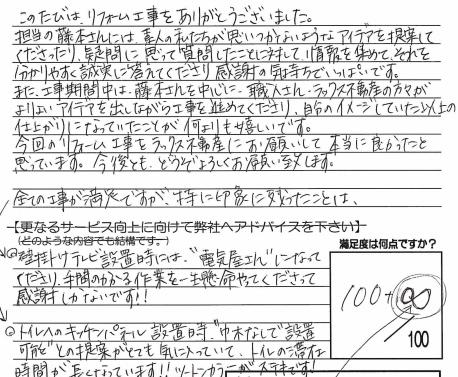 このたびは、リフォーム工事をありがとうございました。
担当の藤本さんには、素人の私たちが思いつかないようなアイデアを提案して
くださったり、疑問に思って質問したことに対して、情報を集めて、それを
分かりやすく誠実に答えてくださり感謝の気持ちでいっぱいです。
また、工事期間中は、藤本さんを中心に、職人さん・ラックス不動産の方々が
よりよいアイデアを出しながら工事を進めてくださり、自分のイメージしていた以上の
仕上がりになっていたことが何よりも嬉しいです。
今回のリフォーム工事をラックス不動産にお願いして本当に良かったと
思っています。今後とも、どうぞよろしくお願い致します。
全ての工事が満足ですが、特に印象に残ったことは、
【更なるサービス向上に向けて弊社へアドバイスを下さい】
(どのような内容でも結構です。)
満足度は何点ですか？
◎壁掛けテレビ設置時には、"電気屋さん"になって
くださり、手間のかかる作業を一生懸命やってくださって
感謝しかないです!!
100+∞
100
◎トイレへのキッチンパネル設置時、"巾木なしで設置
可能"との提案がとても気に入っていて、トイレの滞在
時間が長くなっています!!ツートンカラーがステキです!